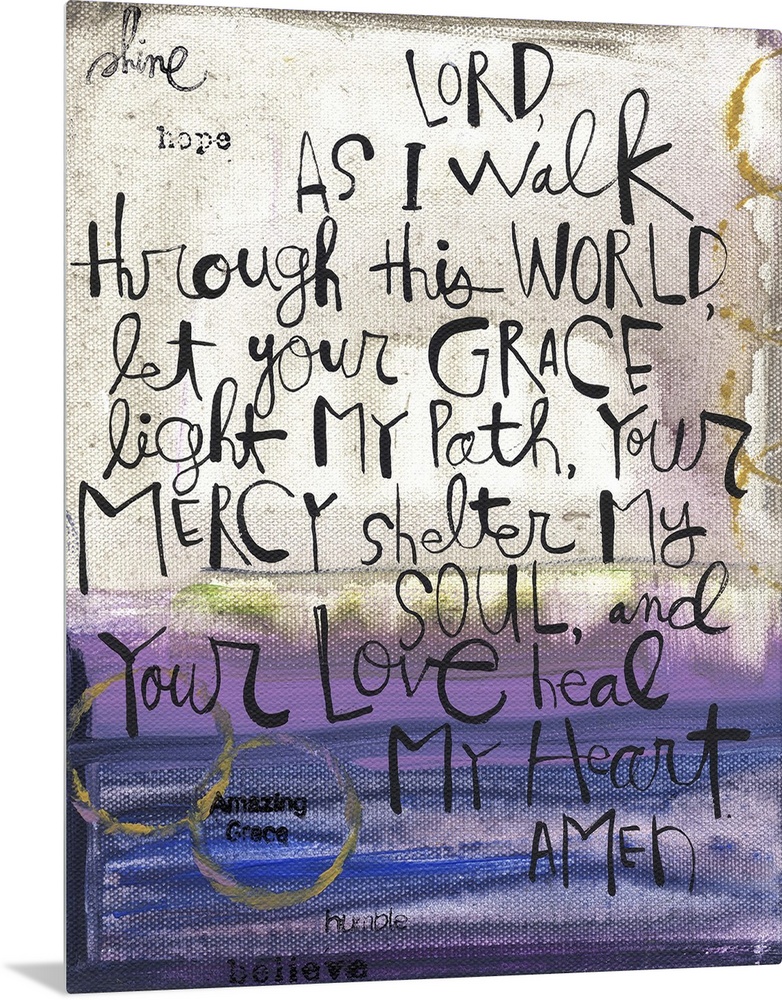 shine
hope
LORD,
AS I walk
through this WORLD,
let your GRACE
light MY Path, Your
MERCY shelter My
SOUL, and
Your Love heal
My Heart.
AMEN
Amazing
Grace
humble
believe